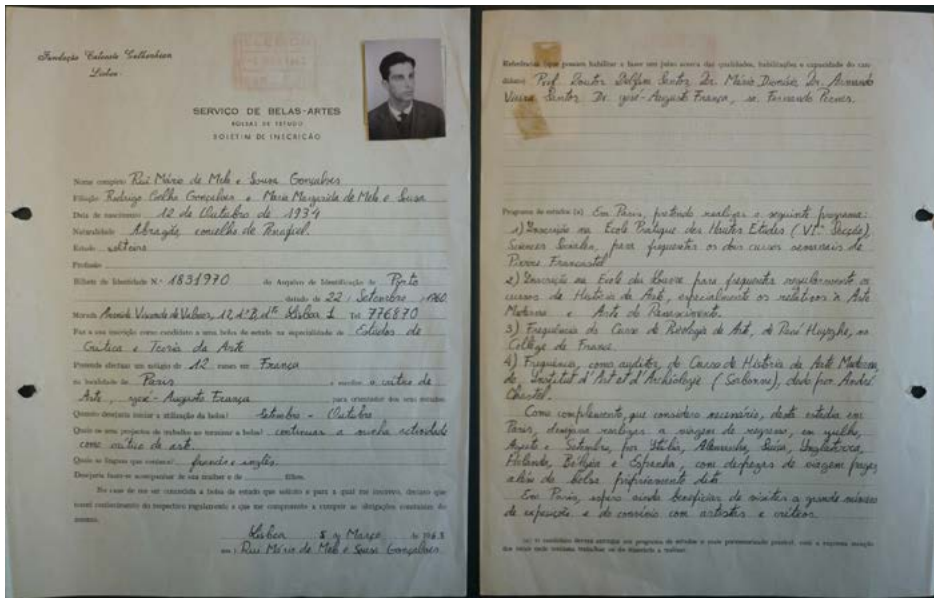 Fundação Calouste Gulbenkian
Lisboa
SERVIÇO DE BELAS-ARTES
BOLSAS DE ESTUDO
BOLETIM DE INSCRIÇÃO
Nome completo Rui Mário de Melo e Sousa Gonçalves
Filiação Rodrigo Coelho Gonçalves e Maria Margarida de Melo e Sousa
Data de nascimento 12 de Outubro de 1934
Naturalidade Abragão, concelho de Penafiel.
Estado solteiro
Profissão
Bilhete de Identidade N.º 1831970 do Arquivo de Identificação de Porto
datado de 22 / Setembro / 1960
Morada Avenida Visconde de Valmor, 12, 1.º D.to Lisboa 1 Tel. 776870
Faz a sua inscrição como candidato a uma bolsa de estudo na especialidade de Estudos de
Crítica e Teoria da Arte
Pretende efectuar um estágio de 12 meses em França
na localidade de Paris e escolheu o crítico de
Arte, José-Augusto França para orientador dos seus estudos.
Quando desejaria iniciar a utilização da bolsa? Setembro - Outubro
Quais os seus projectos de trabalho ao terminar a bolsa? continuar a minha actividade
como crítico de arte.
Quais as línguas que conhece? francês e inglês.
Desejaria fazer-se acompanhar de sua mulher e de filhos.
No caso de me ser concedida a bolsa de estudo que solicito e para a qual me inscrevo, declaro que
tomei conhecimento do respectivo regulamento e que me comprometo a cumprir as obrigações constantes do
mesmo.
Lisboa 8 / Março de 1963
Rui Mário de Melo e Sousa Gonçalves
Referências (que possam habilitar a fazer um juízo acerca das qualidades, habilitações e capacidade do can-
didato) Prof. Doutor Delfim Santos, Dr. Mário Dionísio, Dr. Armando
Vieira Santos, Dr. José-Augusto França, Fernando Pernes.
Programa de estudos (a) Em Paris, pretendo realizar o seguinte programa:
1) Inscrição na École Pratique des Hautes Études (VIª Secção),
Sciences Sociales, para frequentar os dois cursos semanais de
Pierre Francastel
2) Inscrição na École du Louvre para frequentar regularmente os
cursos de História da Arte, especialmente os relativos à Arte
Moderna e Arte do Renascimento.
3) Frequência do Curso de Psicologia da Arte, de René Huyghe, no
Collège de France.
4) Frequência, como auditor, do Curso de História da Arte Moderna,
do Institut d'Art et d'Archéologie (Sorbonne), dado por André
Chastel.
Como complemento, que considero necessário, deste estudo em
Paris, desejava realizar a viagem de regresso, em Julho,
Agosto e Setembro, por Itália, Alemanha, Suíça, Inglaterra,
Holanda, Bélgica e Espanha, com despesas de viagem pagas
além da bolsa propriamente dita.
Em Paris, espero ainda beneficiar de visitas a grande número
de exposições e do convívio com artistas e críticos.
(a) O candidato deverá entregar um programa de estudos o mais pormenorizado possível, com a expressa menção